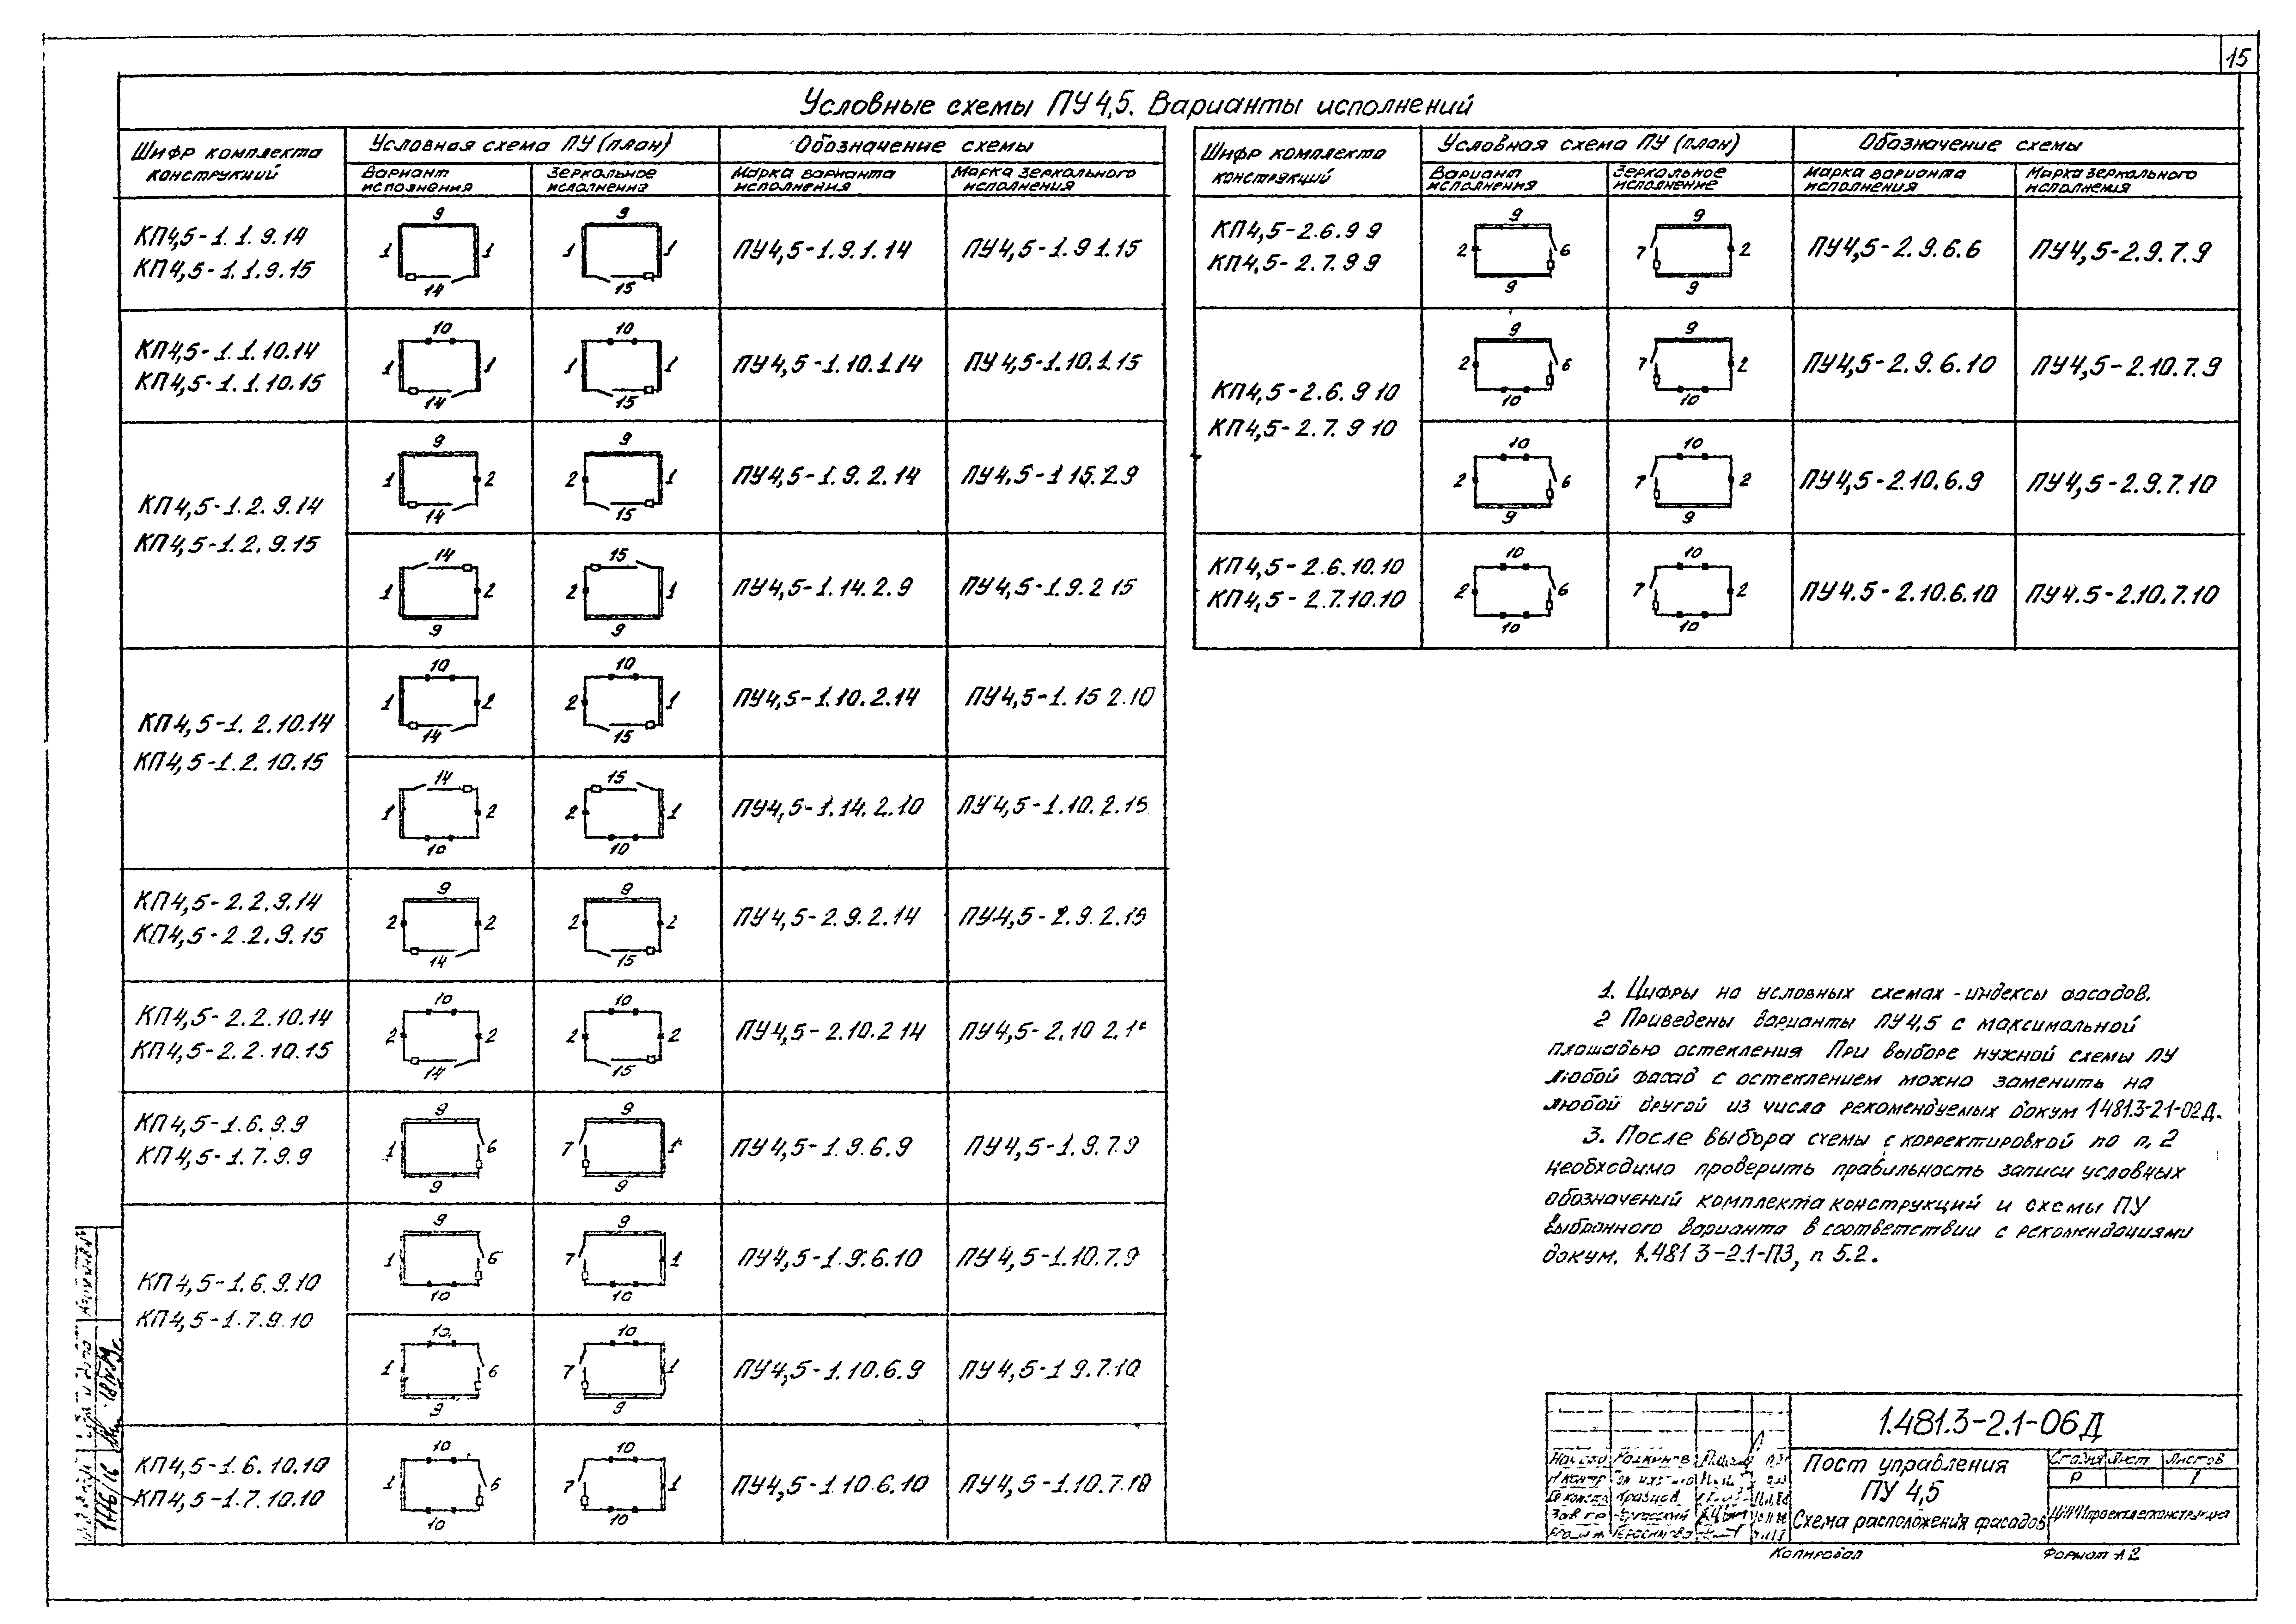 15
Условные схемы ПУ 4,5. Варианты исполнений
Шифр комплекта конструкций
Условная схема ПУ (план)
Обозначение схемы
Вариант исполнения
Зеркальное исполнение
Марка варианта исполнения
Марка зеркального исполнения
КП4,5-1.1.9.14
КП4,5-1.1.9.15
9 1 1 14
9 1 1 15
ПУ4,5-1.9.1.14
ПУ4,5-1.9 1.15
КП4,5-1.1.10.14
КП4,5-1.1.10.15
10 1 1 14
10 1 1 15
ПУ4,5-1.10.1.14
ПУ4,5-1.10.1.15
КП4,5-1.2.9.14
КП4,5-1.2.9.15
9 1 2 14
9 2 1 15
ПУ4,5-1.9.2.14
ПУ4,5-1 15.2.9
14 1 2 9
15 2 1 9
ПУ4,5-1.14.2.9
ПУ4,5-1.9.2 15
КП4,5-1.2.10.14
КП4,5-1.2.10.15
10 1 2 14
10 2 1 15
ПУ4,5-1.10.2.14
ПУ4,5-1.15 2.10
14 1 2 10
15 2 1 10
ПУ4,5-1.14.2.10
ПУ4,5-1.10.2.15
КП4,5-2.2.9.14
КП4,5-2.2.9.15
9 2 2 14
9 2 2 15
ПУ4,5-2.9.2.14
ПУ4,5-2.9.2.15
КП4,5-2.2.10.14
КП4,5-2.2.10.15
10 2 2 14
10 2 2 15
ПУ4,5-2.10.2 14
ПУ4,5-2.10 2.1
КП4,5-1.6.9.9
КП4,5-1.7.9.9
9 1 6 9
9 7 1 9
ПУ4,5-1.9.6.9
ПУ4,5-1.9.7.9
КП4,5-1.6.9.10
КП4,5-1.7.9.10
9 1 6 10
9 7 1 10
ПУ4,5-1.9.6.10
ПУ4,5-1.10.7.9
10 1 6 9
10 7 1 9
ПУ4,5-1.10.6.9
ПУ4,5-1 9.7.10
КП4,5-1.6.10.10
КП4,5-1.7.10.10
10 1 6 10
10 7 1 10
ПУ4,5-1.10.6.10
ПУ4,5-1.10.7.10
Шифр комплекта конструкций
Условная схема ПУ (план)
Обозначение схемы
Вариант исполнения
Зеркальное исполнение
Марка варианта исполнения
Марка зеркального исполнения
КП4,5-2.6.9 9
КП4,5-2.7.9 9
9 2 6 9
9 7 2 9
ПУ4,5-2.9.6.6
ПУ4,5-2.9.7.9
КП4,5-2.6.9 10
КП4,5-2.7.9 10
9 2 6 10
9 7 2 10
ПУ4,5-2.9.6.10
ПУ4,5-2.10.7.9
10 2 6 9
10 7 2 9
ПУ4,5-2.10.6.9
ПУ4,5-2.9.7.10
КП4,5-2.6.10.10
КП4,5-2.7.10.10
10 2 6 10
10 7 2 10
ПУ4.5-2.10.6.10
ПУ4.5-2.10.7.10
1. Цифры на условных схемах - индексы фасадов.
2 Приведены варианты ПУ4,5 с максимальной
площадью остекления При выборе нужной схемы ПУ
любой фасад с остеклением можно заменить на
любой другой из числа рекомендуемых докум 1 481.3-2.1-02Д.
3. После выбора схемы с корректировкой по п. 2
необходимо проверить правильность записи условных
обозначений комплекта конструкций и схемы ПУ
выбранного варианта в соответствии с рекомендациями
докум. 1.481 3-2.1-ПЗ, п 5.2.
1.481.3-2.1-06Д
Пост управления
ПУ 4,5
Схема расположения фасадов
Стадия Лист Листов
Р 1
Кравцов
Копировал
Формат А2